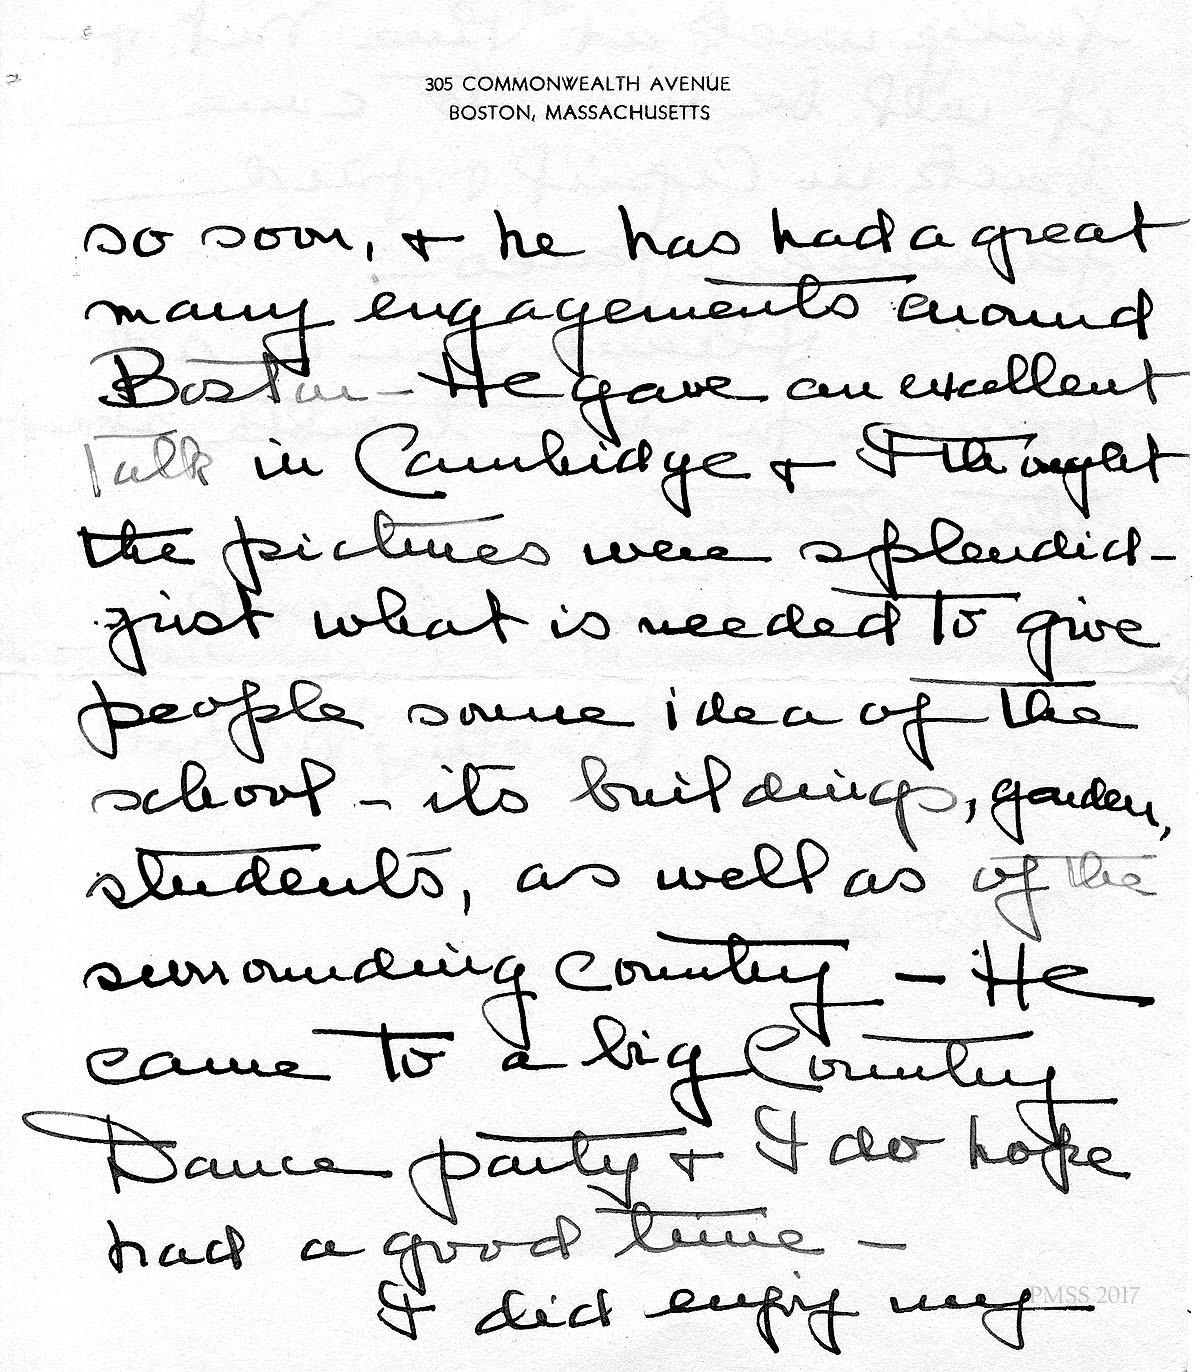 305 COMMONWEALTH AVENUE
BOSTON, MASSACHUSETTS
so soon, & he has had a great
many engagements around
Boston – He gave an excellent
talk in Cambridge & I thought
the pictures were splendid –
just what is needed to give
people some idea of the
school – its buildings, garden,
students, as well as of the
surrounding country – He
came to a big Country
Dance party & I do hope
had a good time –
I did enjoy my
PMSS 2017